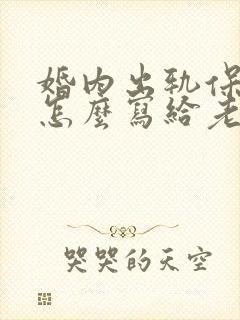 婚内出轨保
怎麼寫給老
哭哭的天空